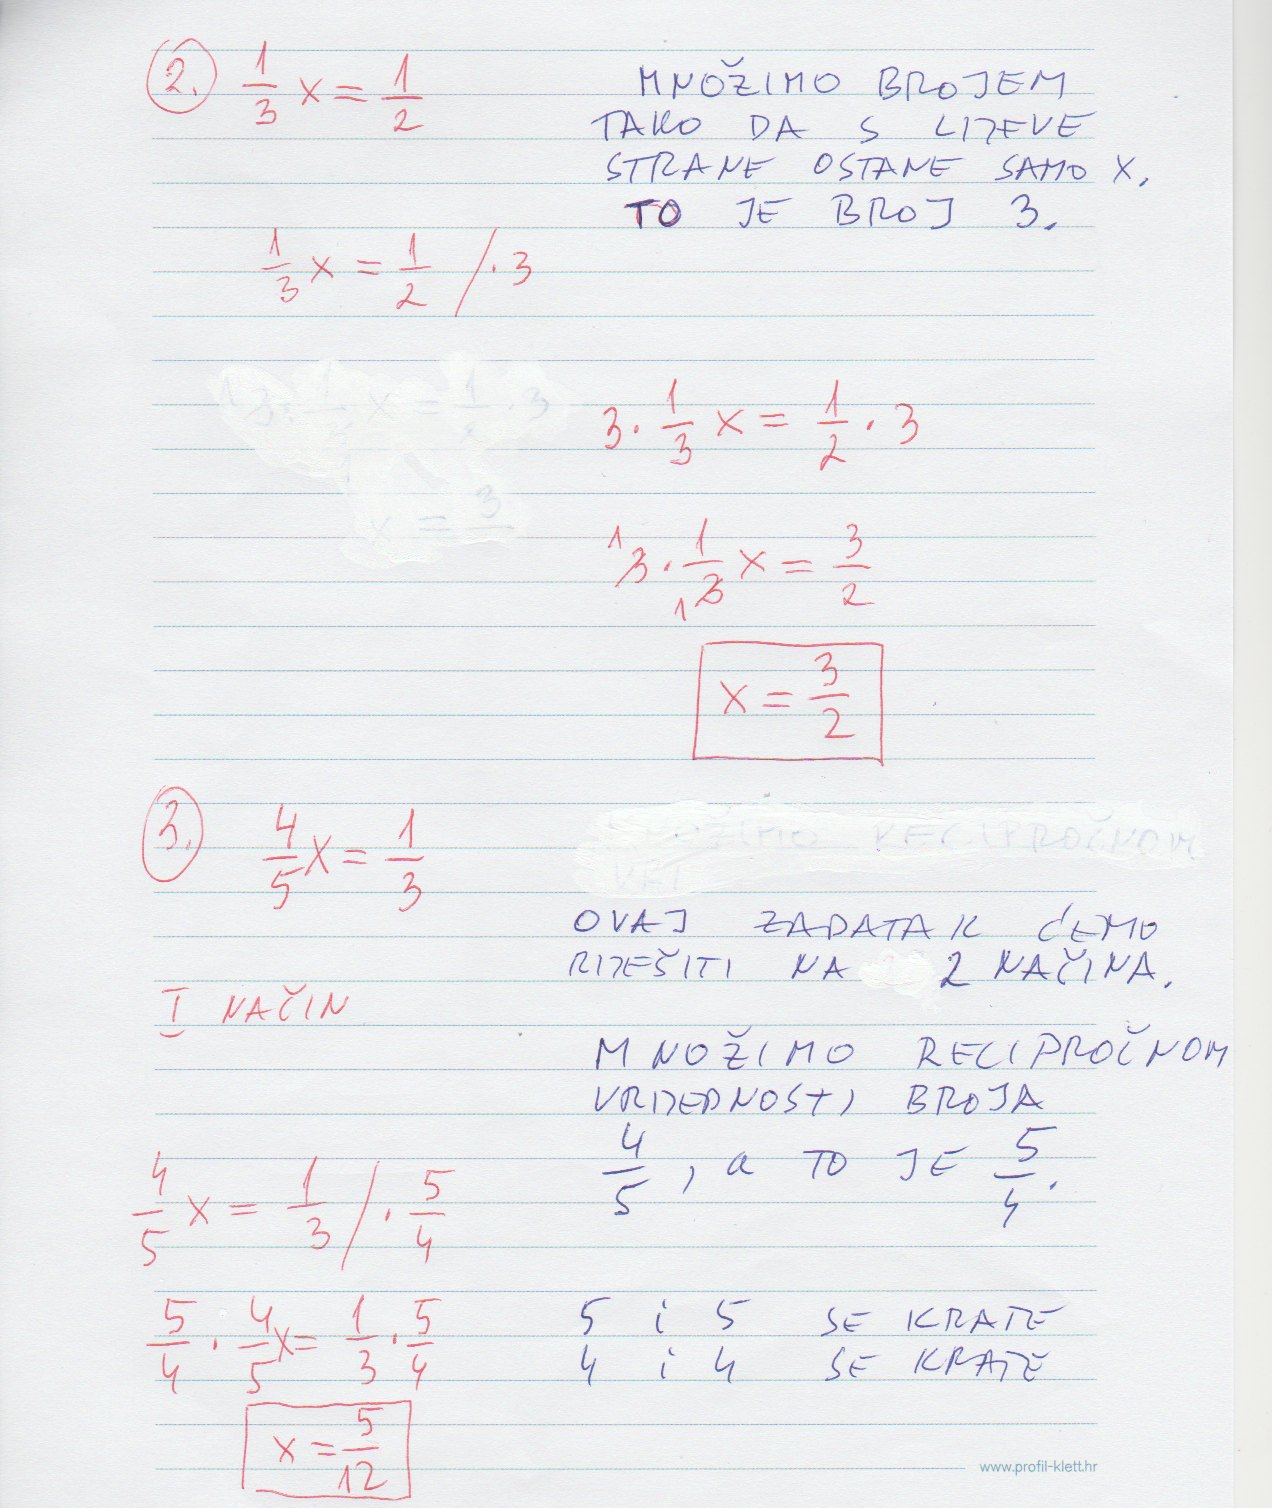 2. 1/3 x = 1/2
MNOŽIMO BROJEM
TAKO DA S LIJEVE
STRANE OSTANE SAMO X.
TO JE BROJ 3.
1/3 x = 1/2 / · 3
3 · 1/3 x = 1/2 · 3
1 3 · 1/3 1 x = 3/2
x = 3/2
3. 4/5 x = 1/3
OVAJ ZADATAK ĆEMO
RIJEŠITI NA 2 NAČINA.
I NAČIN
MNOŽIMO RECIPROČNOM
VRIJEDNOSTI BROJA
4/5, a TO JE 5/4.
4/5 x = 1/3 / · 5/4
5/4 · 4/5 x = 1/3 · 5/4
5 i 5 SE KRATE
4 i 4 SE KRATE
x = 5/12
www.profil-klett.hr